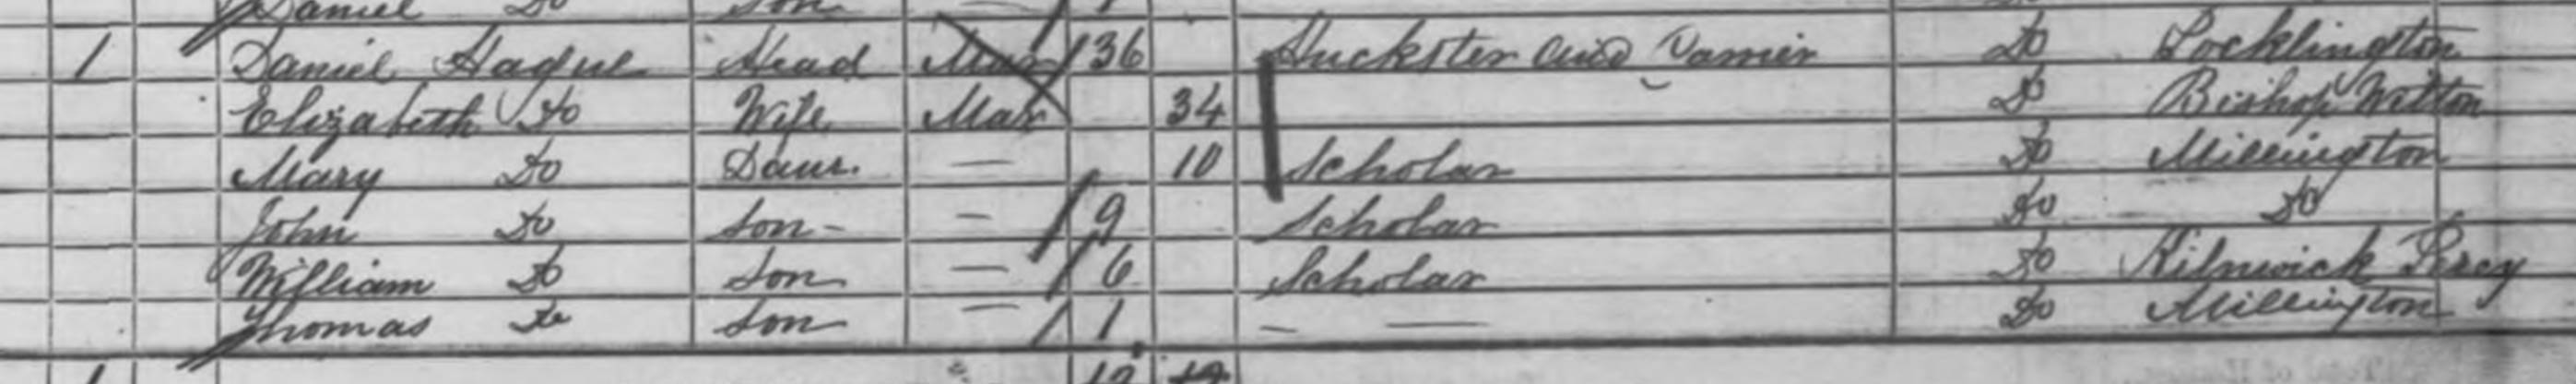 Daniel Do Son 1
1 Daniel Hague Head Mar 36 Huckster and Carrier Do Pocklington
Elizabeth Do Wife Mar 34 Do Bishop Wilton
Mary Do Daur. — 10 Scholar Do Millington
John Do Son - — 9 Scholar Do Do
William Do Son — 6 Scholar Do Kilnwick Percy
Thomas Do Son — 1 — — Do Millington
1 12